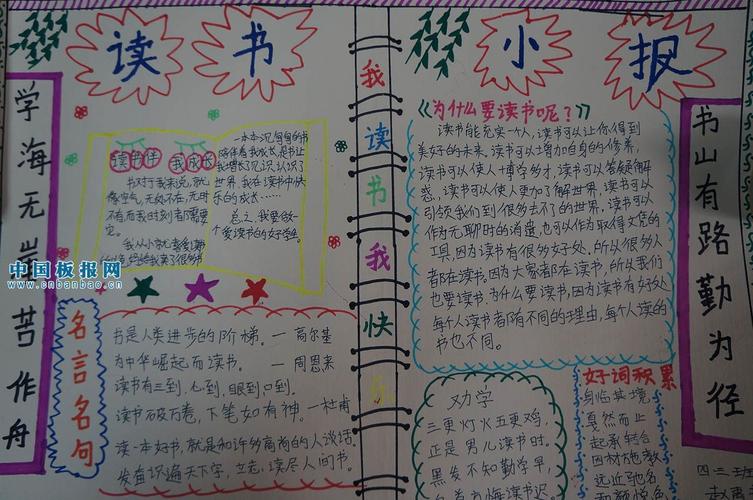 读书
小报
学海无崖苦作舟
读书伴我成长
书对于我来说,就
像空气,无处不在,无时
不有而我时刻者需要
它。
我从小就喜爱读
一本本沉甸甸的书
陪伴着我成长,是书让
我增长了见识,认识了
世界,我在读书中快
乐的成长……
总之,我要做一
个爱读书的好学生。
中国板报网
www.cnbanbao.cn
名言名句
书是人类进步的阶梯。—高尔基
为中华崛起而读书。—周恩来
读书有三到,心到,眼到,口到。
读书破万卷,下笔如有神。—杜甫
读一本好书,就是和许多高尚的人谈话。
发奋识遍天下字,立志读尽人间书。
我读书我快乐
《为什么要读书呢?》
读书能充实一个人,读书可以让你得到
美好的未来。读书可以增加自身的修养,
读书可以使人博学多才,读书可以答疑解
惑,读书可以使人更加了解世界,读书可以
引领我们到很多去不了的世界,读书可以
作为无聊时的消遣,也可以作为取得文凭的
工具,因为读书有很多好处,所以很多人
者在读书。因为大家者在读书,所以我们
也要读书。为什么要读书,因为读书有好处
每个人读书者有不同的理由,每个人读的
书也不同。
劝学
三更灯火五更鸡,
正是男儿读书时,
黑发不知勤学早,
白首方悔读书迟
好词积累
身临其境
戛然而止
起承转合
因材施教
远近驰名
书山有路勤为径
四三班